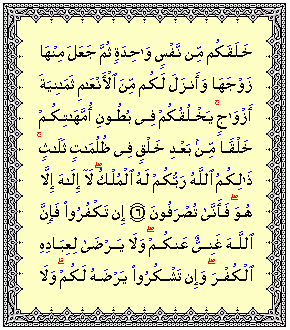 خَلَقَكُم مِّن نَّفْسٍ وَٰحِدَةٍ ثُمَّ جَعَلَ مِنْهَا
زَوْجَهَا وَأَنزَلَ لَكُم مِّنَ ٱلْأَنْعَٰمِ ثَمَٰنِيَةَ
أَزْوَٰجٍ ۚ يَخْلُقُكُمْ فِى بُطُونِ أُمَّهَٰتِكُمْ
خَلْقًا مِّنۢ بَعْدِ خَلْقٍ فِى ظُلُمَٰتٍ ثَلَٰثٍ ۚ
ذَٰلِكُمُ ٱللَّهُ رَبُّكُمْ لَهُ ٱلْمُلْكُ ۖ لَآ إِلَٰهَ إِلَّا
هُوَ ۖ فَأَنَّىٰ تُصْرَفُونَ ﴿٦﴾ إِن تَكْفُرُوا۟ فَإِنَّ
ٱللَّهَ غَنِىٌّ عَنكُمْ ۖ وَلَا يَرْضَىٰ لِعِبَادِهِ
ٱلْكُفْرَ ۖ وَإِن تَشْكُرُوا۟ يَرْضَهُ لَكُمْ ۗ وَلَا